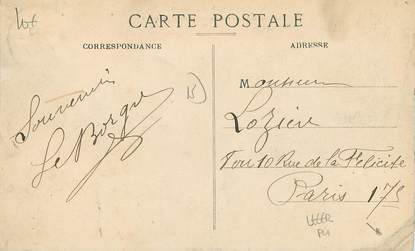 CARTE POSTALE
CORRESPONDANCE
ADRESSE
Souvenirs
Le Borgne
15
Monsieur
Lozier
Rue de la Félicité
Paris 17e